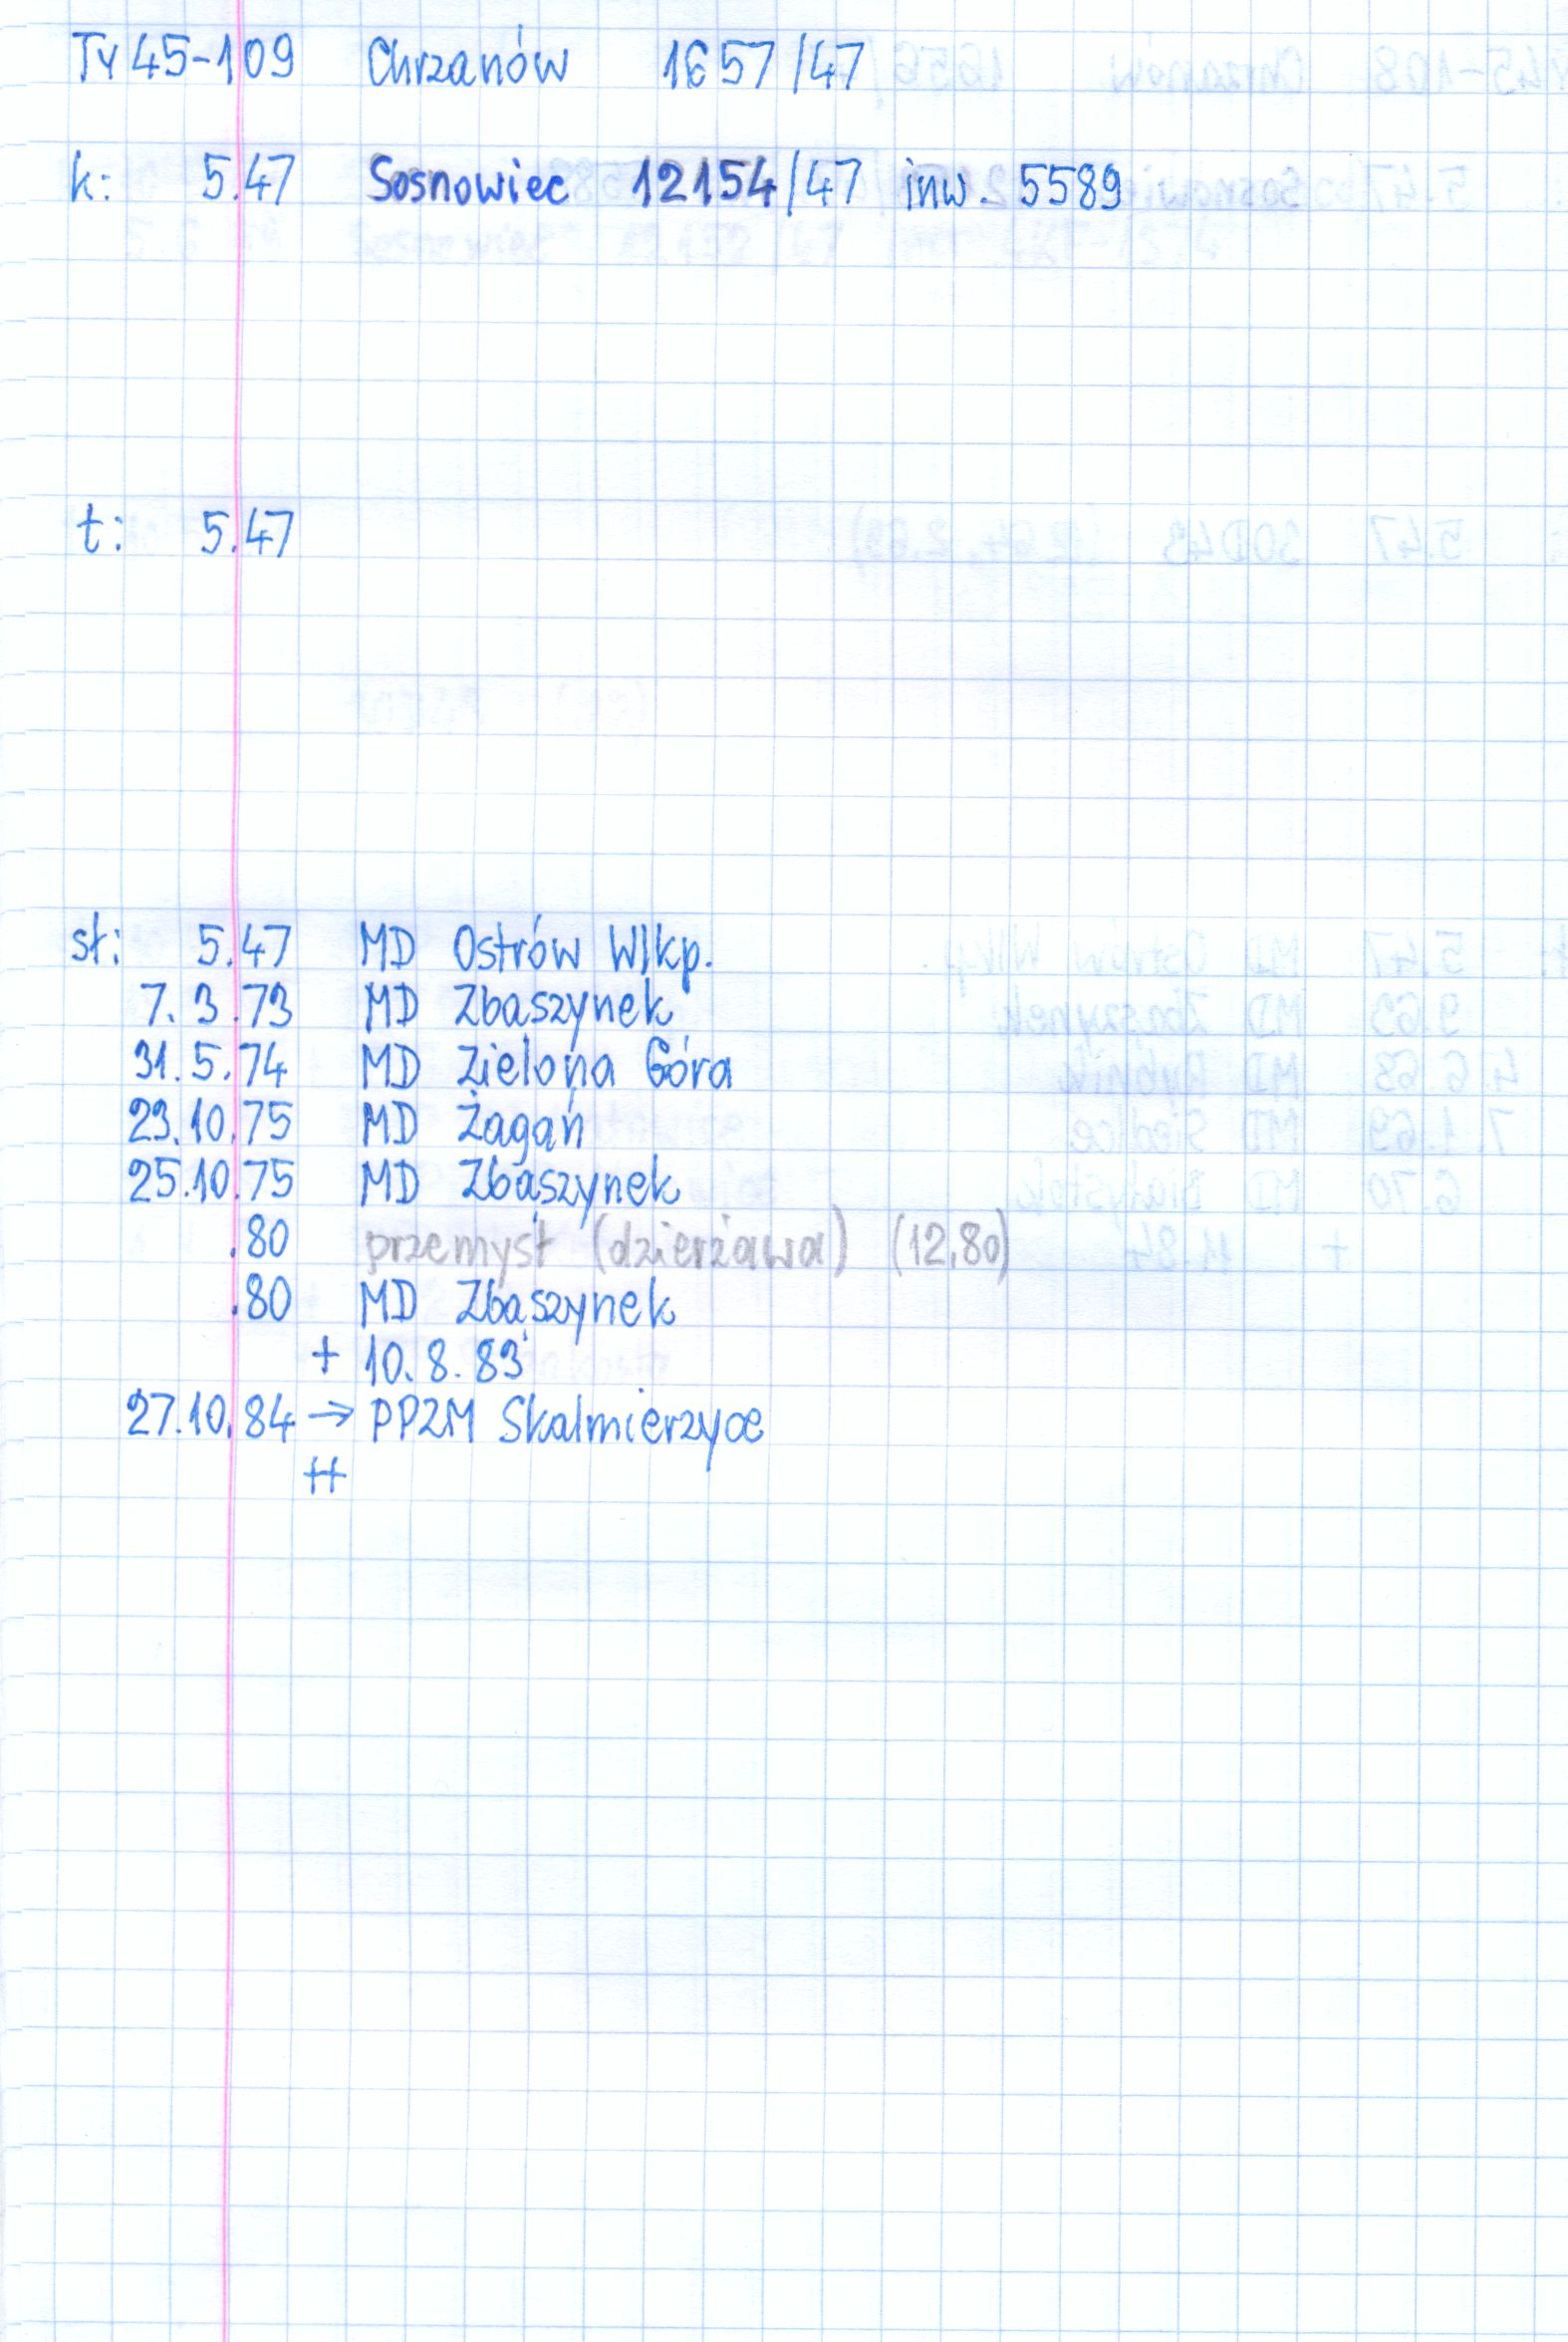 Ty45-109 Chrzanów 1657/47
k: 5.47 Sosnowiec 12154/47 inw. 5589
t: 5.47
sł: 5.47 MD Ostrów Wlkp.
7.3.73 MD Zbąszynek
31.5.74 MD Zielona Góra
23.10.75 MD Żagań
25.10.75 MD Zbąszynek
.80 przemysł (dzierżawa) (12.80)
.80 MD Zbąszynek
+ 10.8.83
27.10.84 → PPZM Skalmierzyce
++